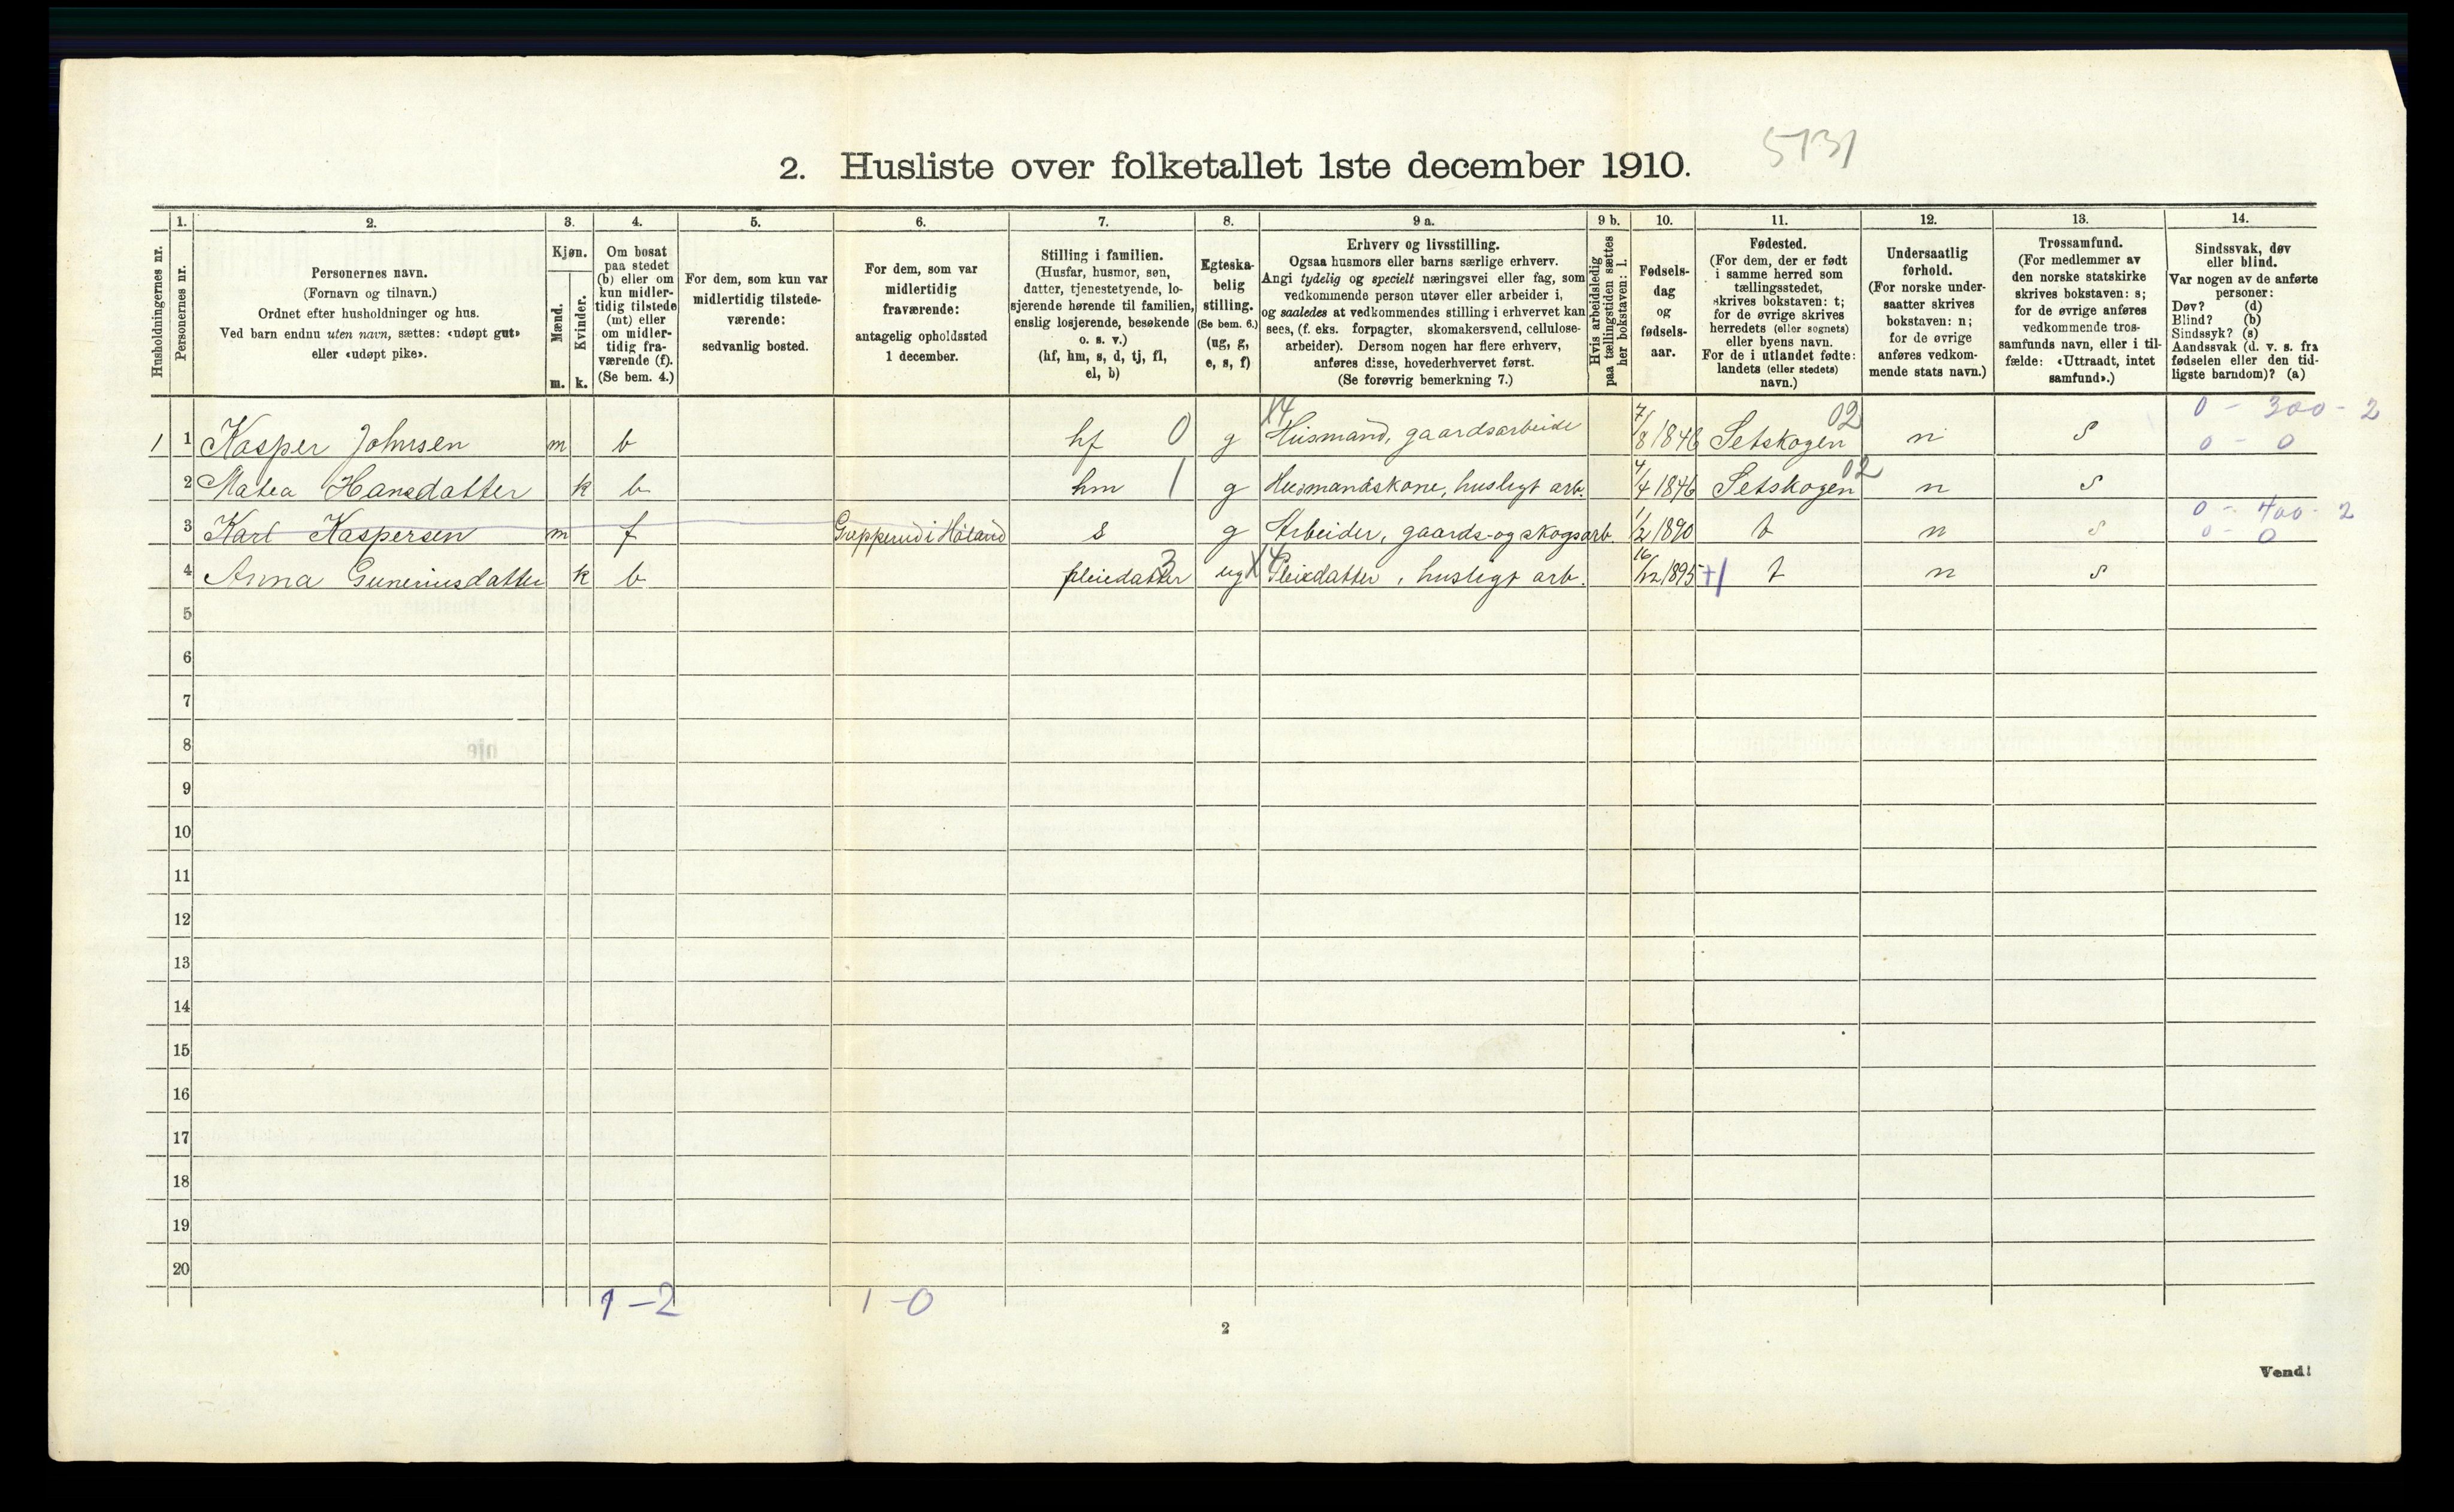 5131
2. Husliste over folketallet 1ste december 1910.
Husholdningernes nr.
1.
Personernes nr.
2.
Personernes navn.
(Fornavn og tilnavn.)
Ordnet efter husholdninger og hus.
Ved barn endnu uten navn, sættes: «udøpt gut»
eller «udøpt pike».
3.
Kjøn.
Mænd.
Kvinder.
m. k.
4.
Om bosat
paa stedet
(b) eller om
kun midler-
tidig tilstede
(mt) eller
om midler-
tidig fra-
værende (f).
(Se bem. 4.)
5.
For dem, som kun var
midlertidig tilstede-
værende:
sedvanlig bosted.
6.
For dem, som var
midlertidig
fraværende:
antagelig opholdssted
1 december.
7.
Stilling i familien.
(Husfar, husmor, søn,
datter, tjenestetyende, lo-
sjerende hørende til familien,
enslig losjerende, besøkende
o. s. v.)
(hf, hm, s, d, tj, fl,
el, b)
8.
Egteska-
belig
stilling.
(Se bem. 6.)
(ug, g,
e, s, f)
9 a.
Erhverv og livsstilling.
Ogsaa husmors eller barns særlige erhverv.
Angi tydelig og specielt næringsvei eller fag, som
vedkommende person utøver eller arbeider i,
og saaledes at vedkommendes stilling i erhvervet kan
sees, (f. eks. forpagter, skomakersvend, cellulose-
arbeider). Dersom nogen har flere erhverv,
anføres disse, hovederhvervet først.
(Se forøvrig bemerkning 7.)
9 b.
Hvis arbeidsledig
paa tællingstiden sættes
her bokstaven: l.
10.
Fødsels-
dag
og
fødsels-
aar.
11.
Fødested.
(For dem, der er født
i samme herred som
tællingsstedet,
skrives bokstaven: t;
for de øvrige skrives
herredets (eller sognets)
eller byens navn.
For de i utlandet fødte:
landets (eller stedets)
navn.)
12.
Undersaatlig
forhold.
(For norske under-
saatter skrives
bokstaven: n;
for de øvrige
anføres vedkom-
mende stats navn.)
13.
Trossamfund.
(For medlemmer av
den norske statskirke
skrives bokstaven: s;
for de øvrige anføres
vedkommende tros-
samfunds navn, eller i til-
fælde: «Uttraadt, intet
samfund».)
14.
Sindssvak, døv
eller blind.
Var nogen av de anførte
personer:
Døv? (d)
Blind? (b)
Sindssyk? (s)
Aandssvak (d. v. s. fra
fødselen eller den tid-
ligste barndom)? (a)
X4 02 0 - 300 - 2
1 1 Kasper Johnsen m b hf 0 g Husmand, gaardsarbeide 7/8 1846 Setskogen n s 0 - 0
2 Matea Hansdatter k b hm 1 g Husmandskone, husligt arb. 4/4 1846 Setskogen 02 n s
0 - 400 - 2
3 Karl Kaspersen m f i Høland s g Arbeider, gaards- og skogsarb. 1/2 1890 t n s 0 - 0
4 Anna Guneriusdatter k b pleiedatter 3 ug X4 Pleiedatter, husligt arb. 16/12 1895 +1 t n s
5
6
7
8
9
10
11
12
13
14
15
16
17
18
19
20
1 - 2 1 - 0
2
Vend!